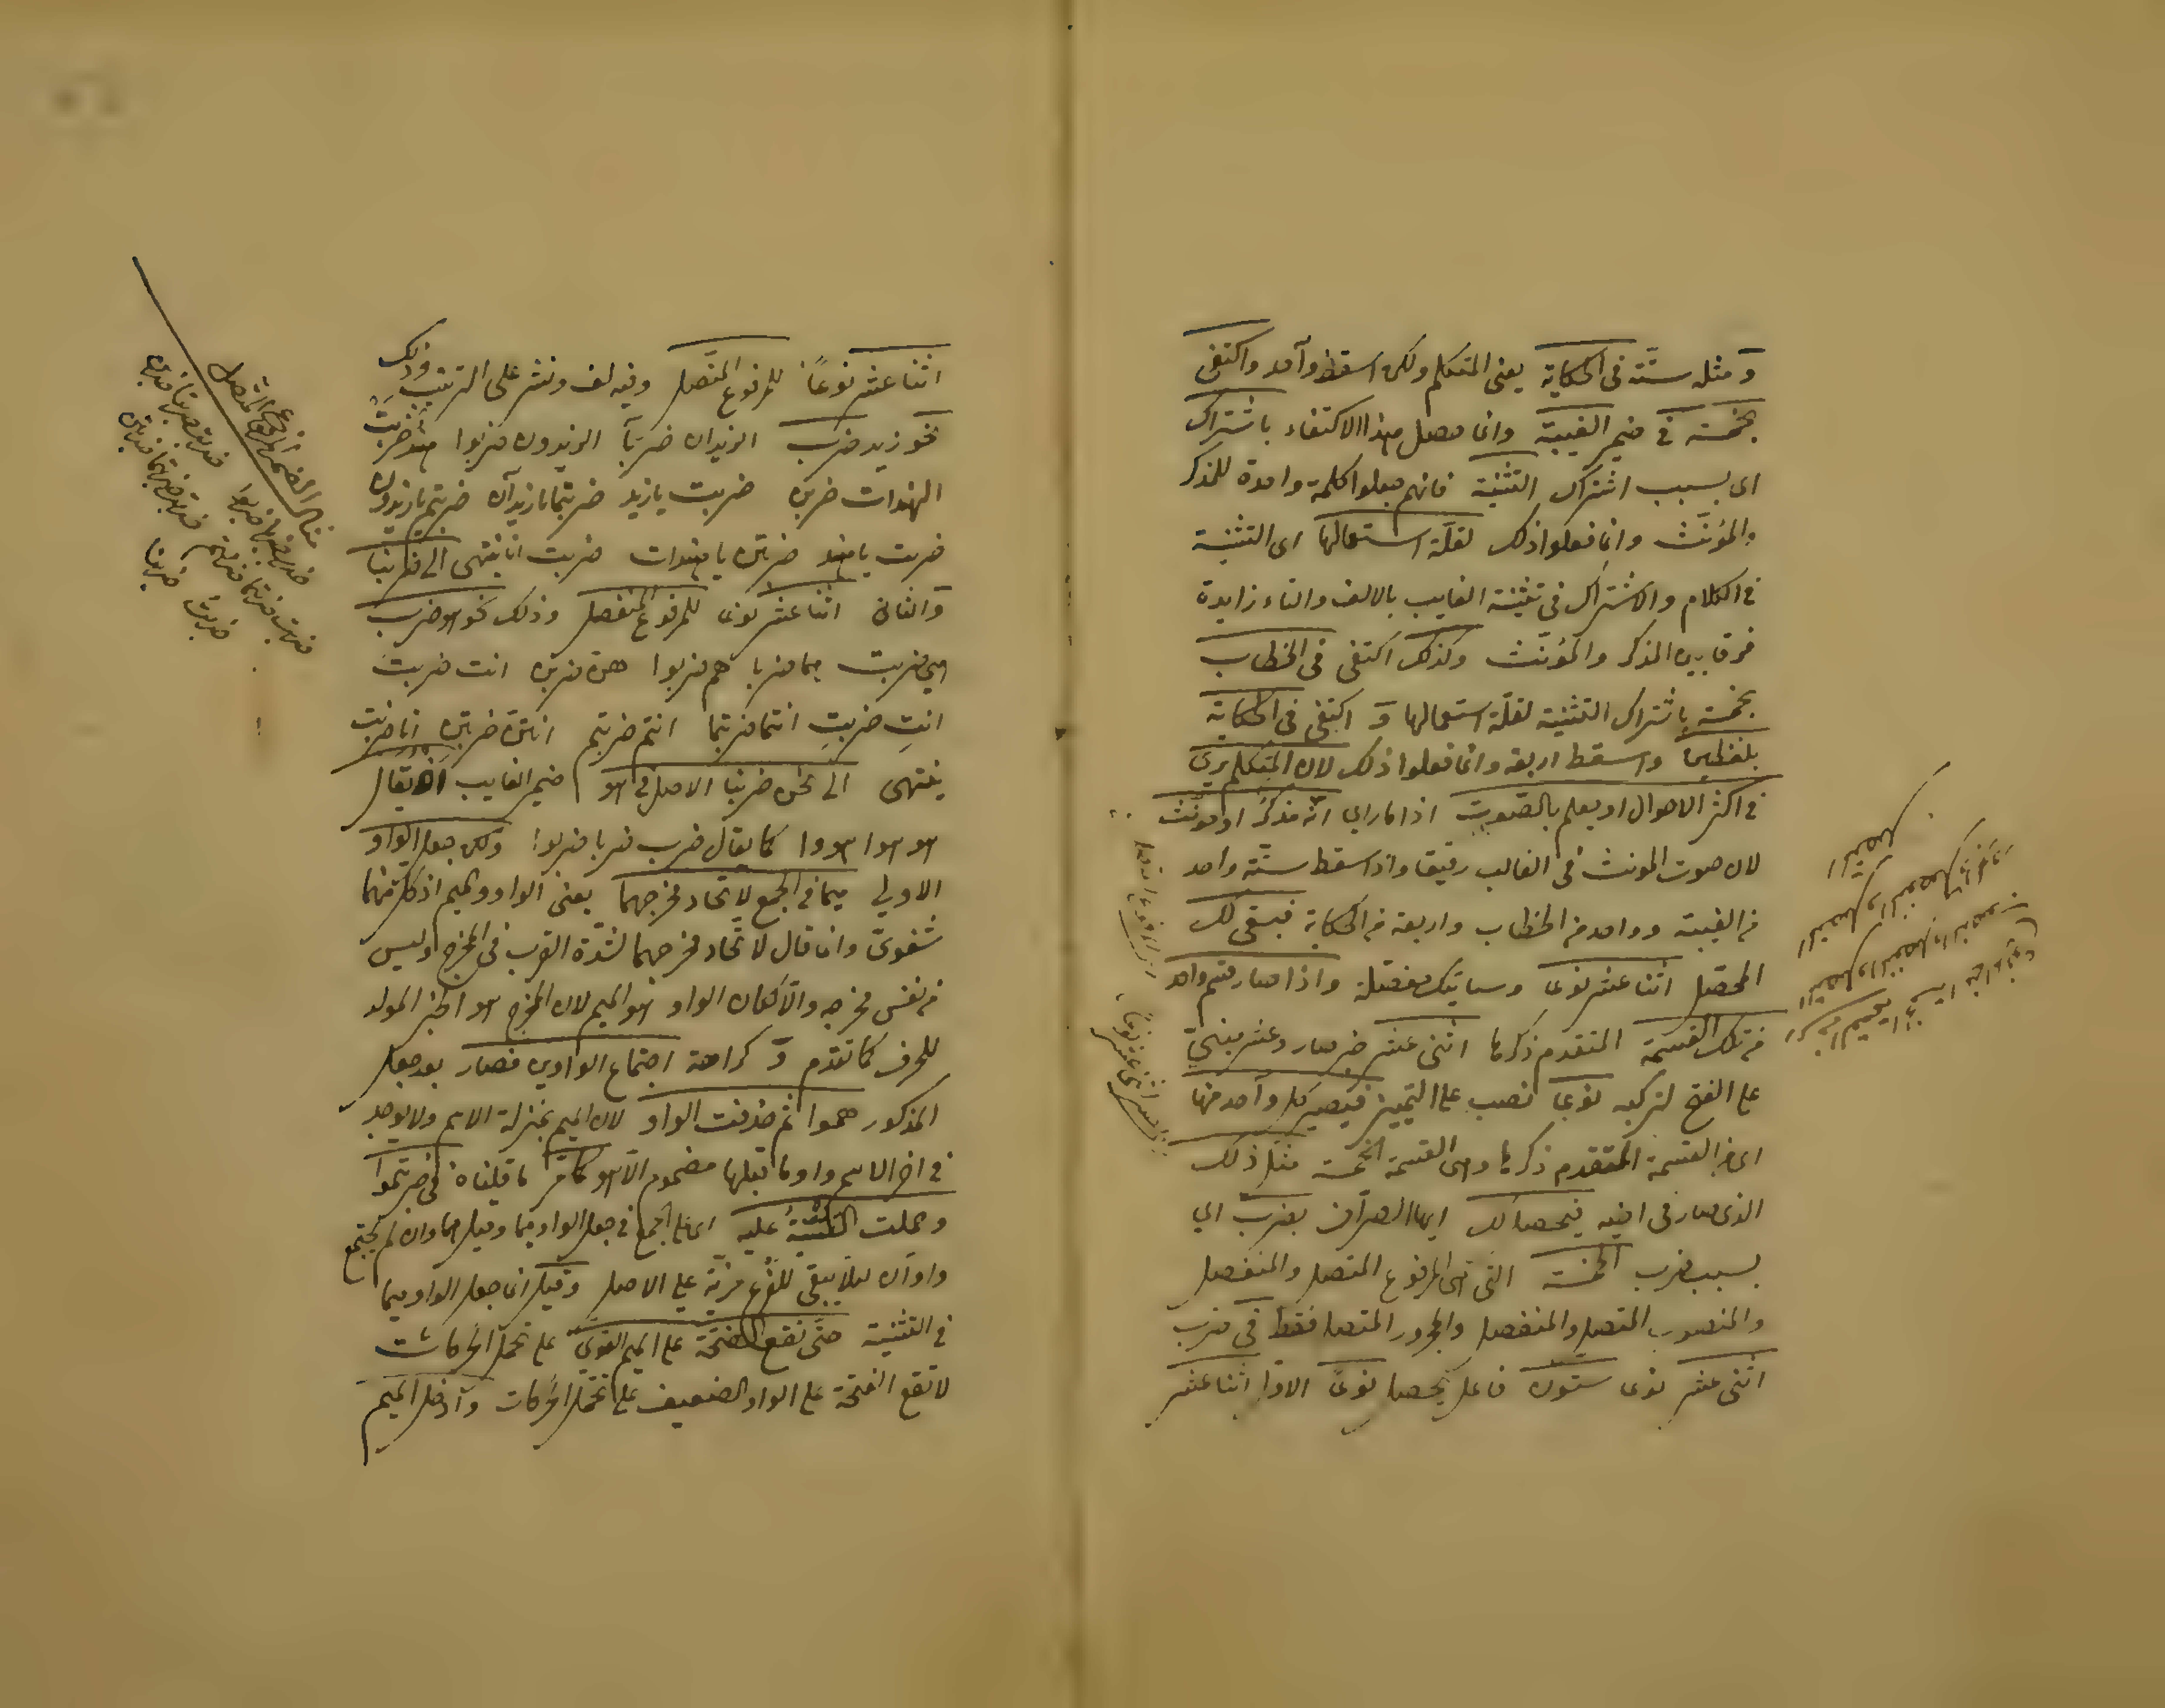 ومثله ستّة في الحكاية يعني المتكلم ولكن اسقط واحد واكتفى
بخمسة في ضمير الغيبة وانما حصل هذا الاكتفاء باشتراك
اى بسبب اشتراك التثنية فانهم جعلوا كلمة واحدة للمذكر
والمؤنّث وانما فعلوا ذلك لقلّة استعمالها اى التثنية
في الكلام والاشتراك في تثنية الغايب بالالف والتاء زايدة
فرقا بين المذكر والمؤنّث وكذلك اكتفى في الخطاب
بخمسة باشتراك التثنية لقلّة استعمالها و اكتفى في الحكاية
بلفظين واسقط اربعة وانما فعلوا ذلك لان المتكلم يرى
في اكثر الاحوال او يعلم بالصّوت اذا ما راى انّه مذكر او مونّث
لان صوت المونث في الغالب رقيقا واذا اسقط ستّة واحد
من الغيبة وواحد من الخطاب واربعة من الحكاية فبقى لك
المحصّل اثنا عشر نوعا وسياتيك مفصّلة واذا صار قسم واحد
من تلك القسمة المتقدم ذكرها اثنى عشر خبر صار وعشر مبنىّ
على الفتح لتركبه نوعا نصب على التمييز فيصير كل واحد منها
اى من القسمة المتقدم ذكرها وهى القسمة الخمسة مثل ذلك
الذى صار في اخيه فيحصل لك ايها الصرّاف بضرب اي
بسبب ضرب الخمسة التى هى المرفوع المتصل والمنفصل
والمنصوب المتصل والمنفصل والمجرور المتصل فقط في ضرب
اثنى عشر نوعا ستون فاعل يحصل نوعا الاول اثنا عشر
اثنا عشر نوعاً للمرفوع المتّصل وفيه لف ونشر على الترتيب وذلك
نحو زيد ضرب الزيدان ضربا الزيدون ضربوا هند ضربت
الهندات ضربن ضربت يا زيد ضربتما يا زيدان ضربتم يا زيدون
ضربت يا هند ضربتن يا هندات ضربت انا ينتهى الى ضربنا
والثانى اثنا عشر نوعا للمرفوع المنفصل وذلك نحو هو ضرب
هي ضربت هما ضربا هم ضربوا هن ضربن انت ضربت
انتِ ضربتِ انتما ضربتما انتم ضربتم انتن ضربتن انا ضربت
ينتهى الى نحن ضربنا الاصل في هو ضمير الغايب ان يقال
هو هوا هووا كما يقال ضرب ضربا ضربوا ولكن جعل الواو
الاولى ميما في الجمع لاتحاد مخرجهما يعنى الواو والميم اذ كل منهما
شفوىّ وانما قال لاتحاد مخرجهما لشدّة القرب في المخرج وليس
من نفس مخرجه والّا لكان الواو هو الميم لان المخرج هو الحيز المولد
للحرف كما تقدم و كراهة اجتماع الواوين فصار بعد جعل
المذكور هموا ثم حذفت الواو لان الميم بمنزلة الاسم ولا يوجد
في اخر الاسم واو ما قبلها مضموم الّا هو كما مرّ ما قلناه في ضربتموا
وحملت التثنية عليه اى على الجمع في جعل الواو ميما وقيل هما وان لم يجتمع
واوان ليلا يبقى للفرع مزيّة على الاصل وقيل انما جعل الواو ميما
في التثنية حتّى تقع الفتحة على الميم القوىّ على تحمل الحركات
لا تقع الفتحة على الواو الضعيف على تحمّل الحركات وادخل الميم
مثال الضمير المرفوع المتصل
ضرب ضربا ضربوا ضربت ضربتا ضربن
ضربت ضربتما ضربتم ضربت ضربتما ضربتن
ضربت ضربنا